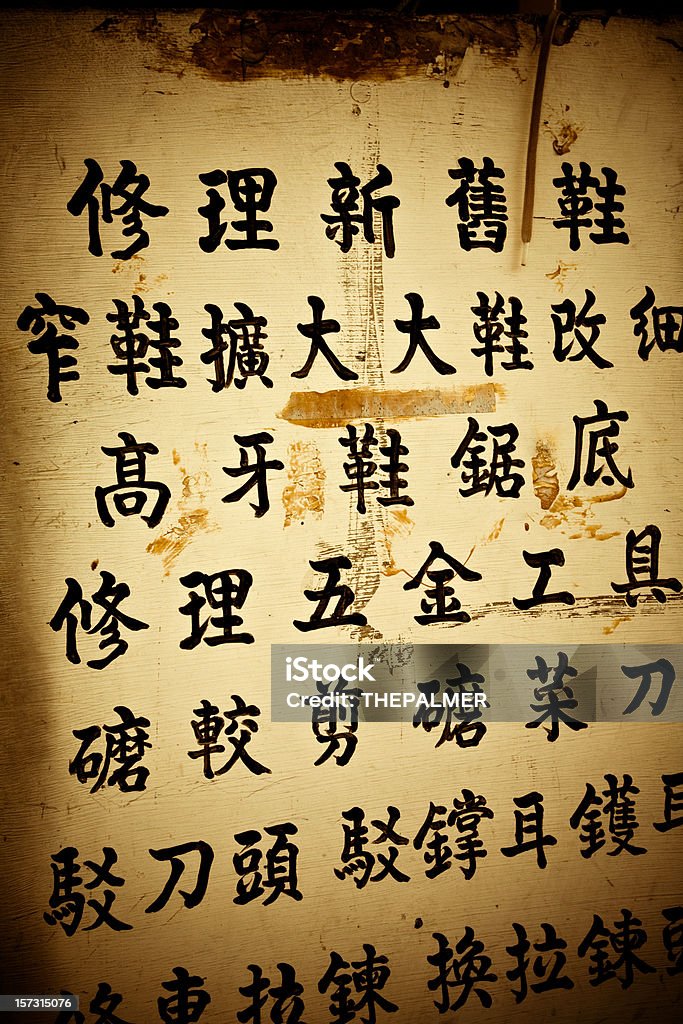 修理新舊鞋
窄鞋擴大大鞋改細
高牙鞋鋸底
修理五金工具
磨較剪磨菜刀
駁刀頭駁鐣耳鑊耳
修車拉鍊換拉鍊頭
iStock
Credit: THEPALMER
157315076